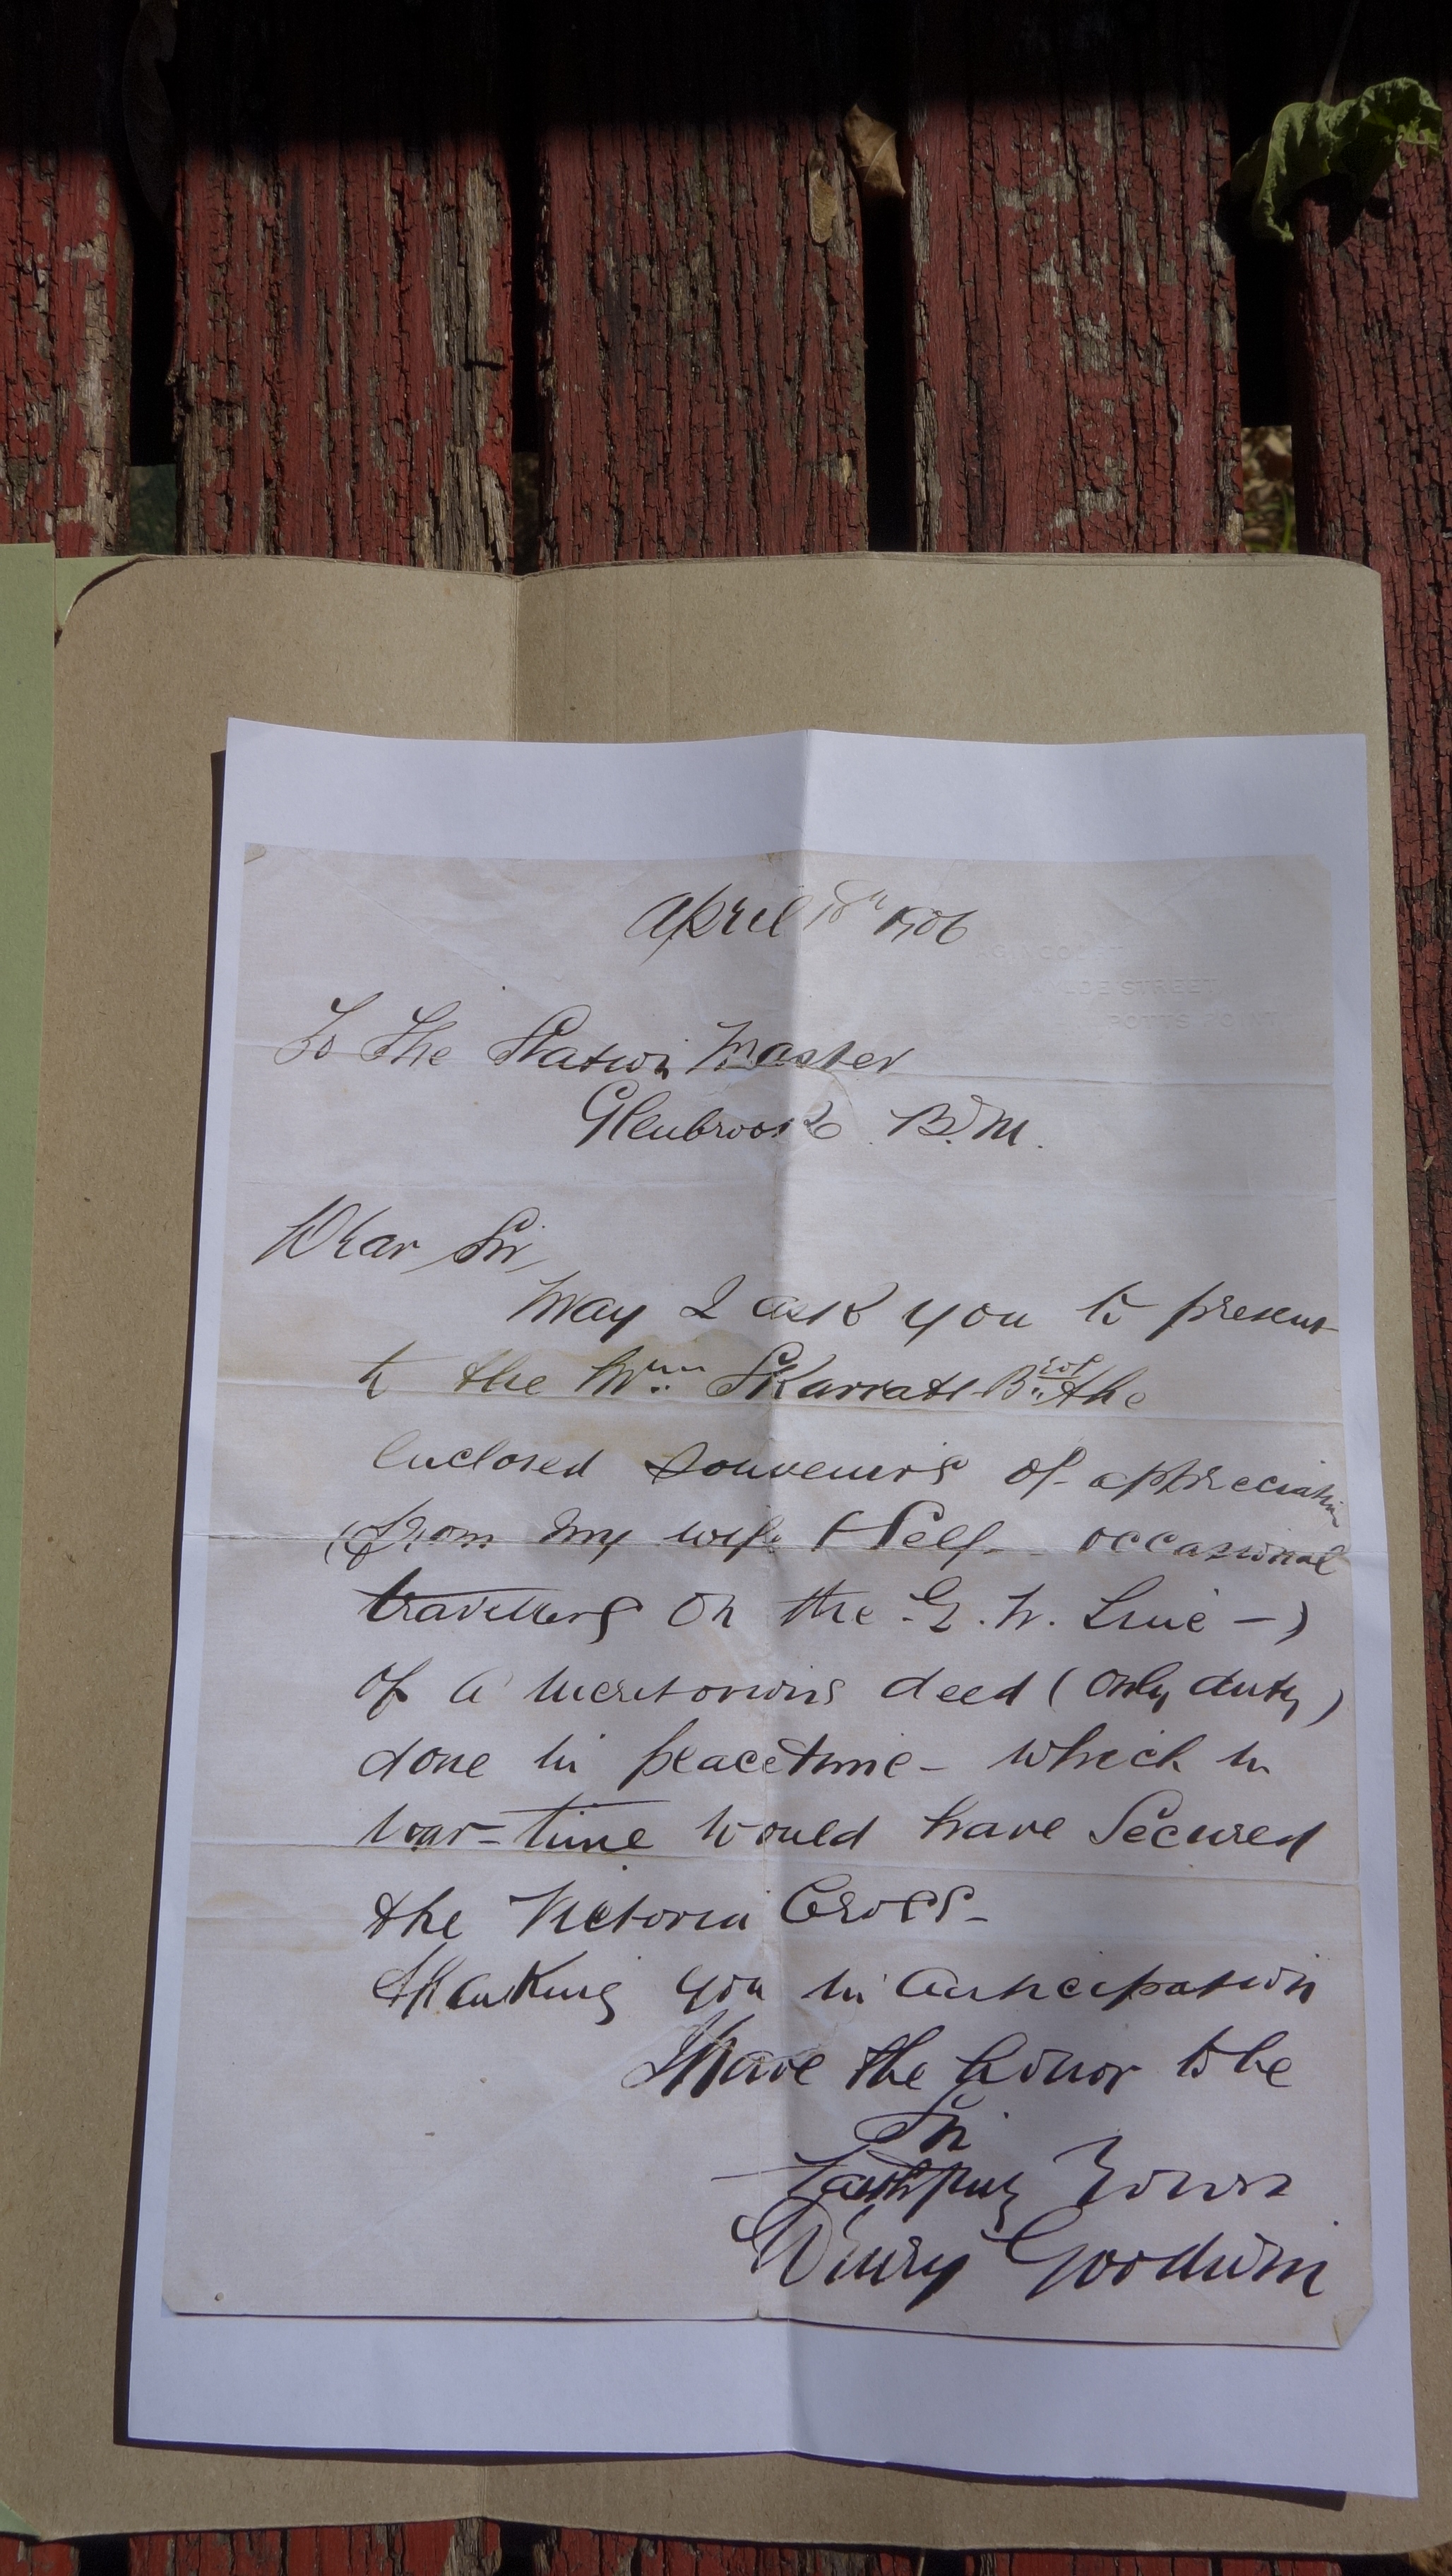 April 18th 1906
WYLDE STREET
POTTS POINT
To The Station Master
Glenbrook B.M.
Dear Sir,
May I ask you to present
to the Skarratt the
enclosed souvenirs of appreciation
(from my wife & self - occasional
travellers on the G. W. Line -)
of a meritorious deed (only duty)
done in peacetime - which in
war-time would have secured
the Victoria Cross -
Thanking you in anticipation
I have the honor to be
Sir
Faithfully Yours
Henry Goodwin